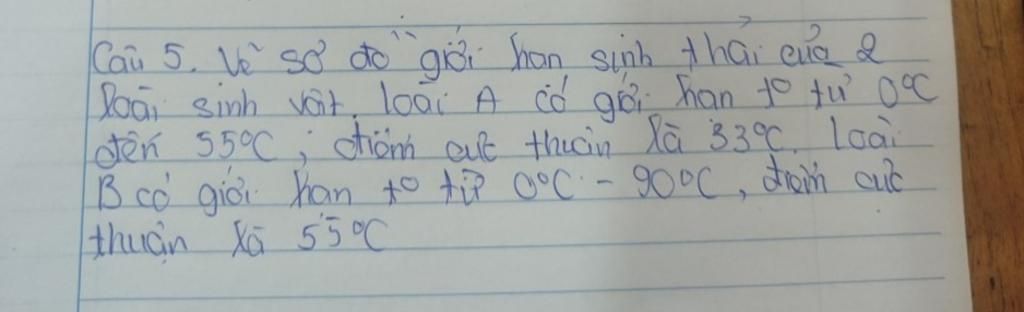 Câu 5. Vẽ sơ đồ giới hạn sinh thái của 2
loài sinh vật. loài A có giới hạn t° từ 0°C
đến 55°C, điểm cực thuận là 33°C. Loài
B có giới hạn t° từ 0°C - 90°C, điểm cực
thuận là 55°C